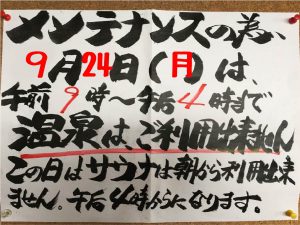 メンテナンスの為、
9月24日(月)は、
午前9時〜午后4時まで
温泉は、ご利用出来ません
この日はサウナは朝から利用出来
ません。午后4時からになります。